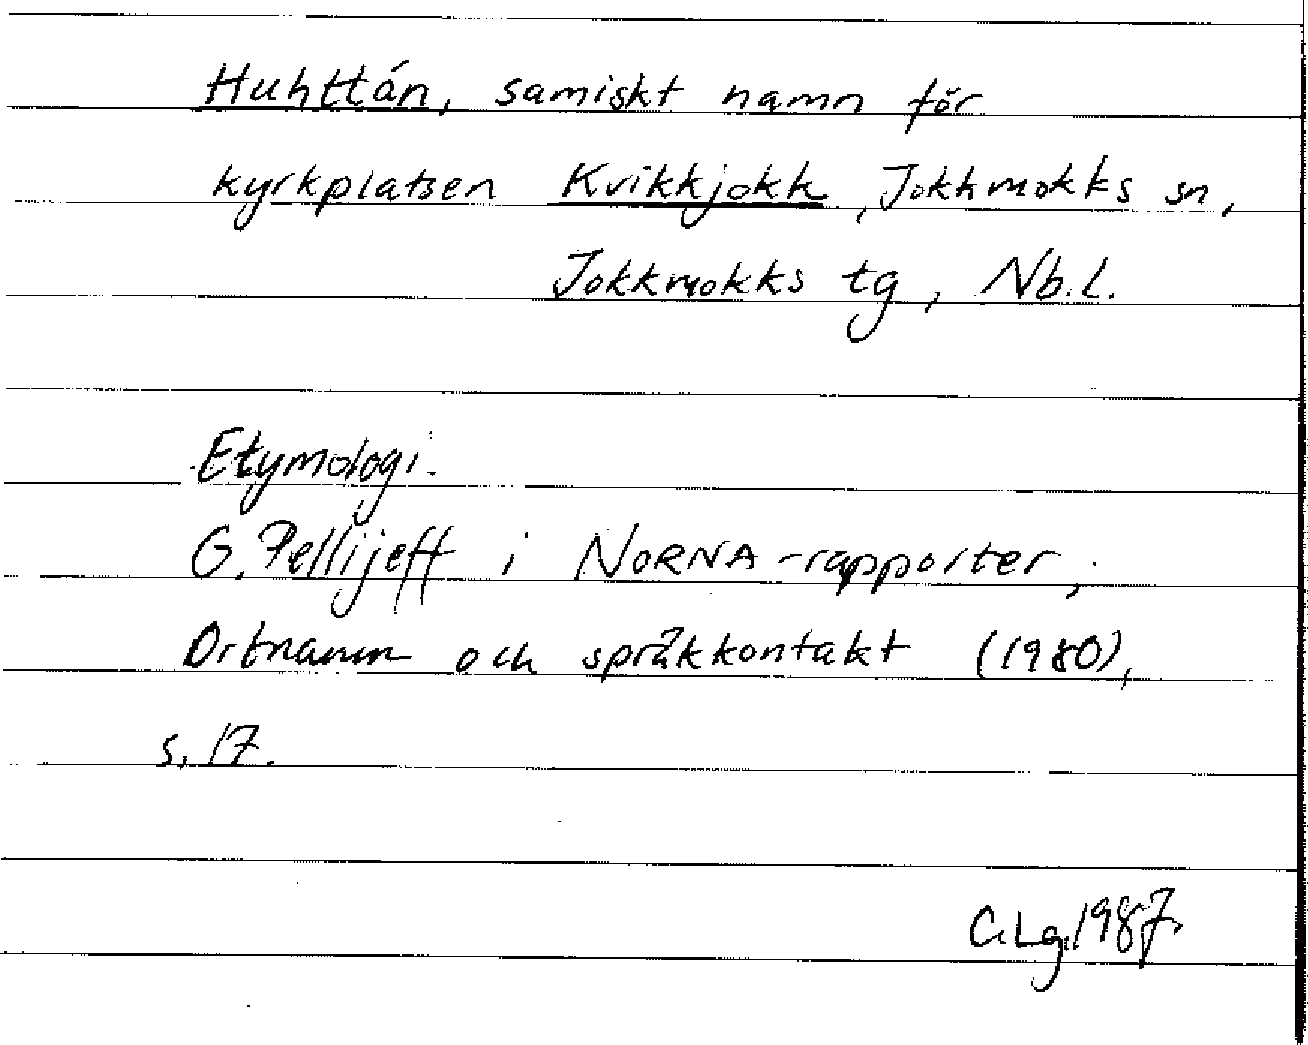 Huhttán, samiskt namn för
kyrkplatsen Kvikkjokk, Jokkmokks sn,
Jokkmokks tg, Nb.l.
Etymologi:
G. Pellijeff i NORNA-rapporter,
Ortnamn och språkkontakt (1980),
s. 17.
C.Lg.1987.